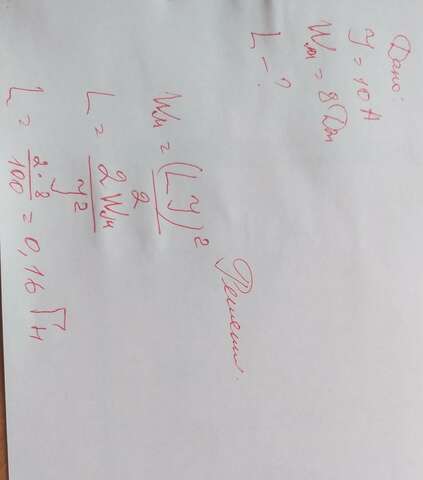 Дано:
У = 10 А
Wм = 8 Дж
L – ?
Решение.
Wм = (LУ)²/2
L = 2Wм/У²
L = 2·8/100 = 0,16 Гн